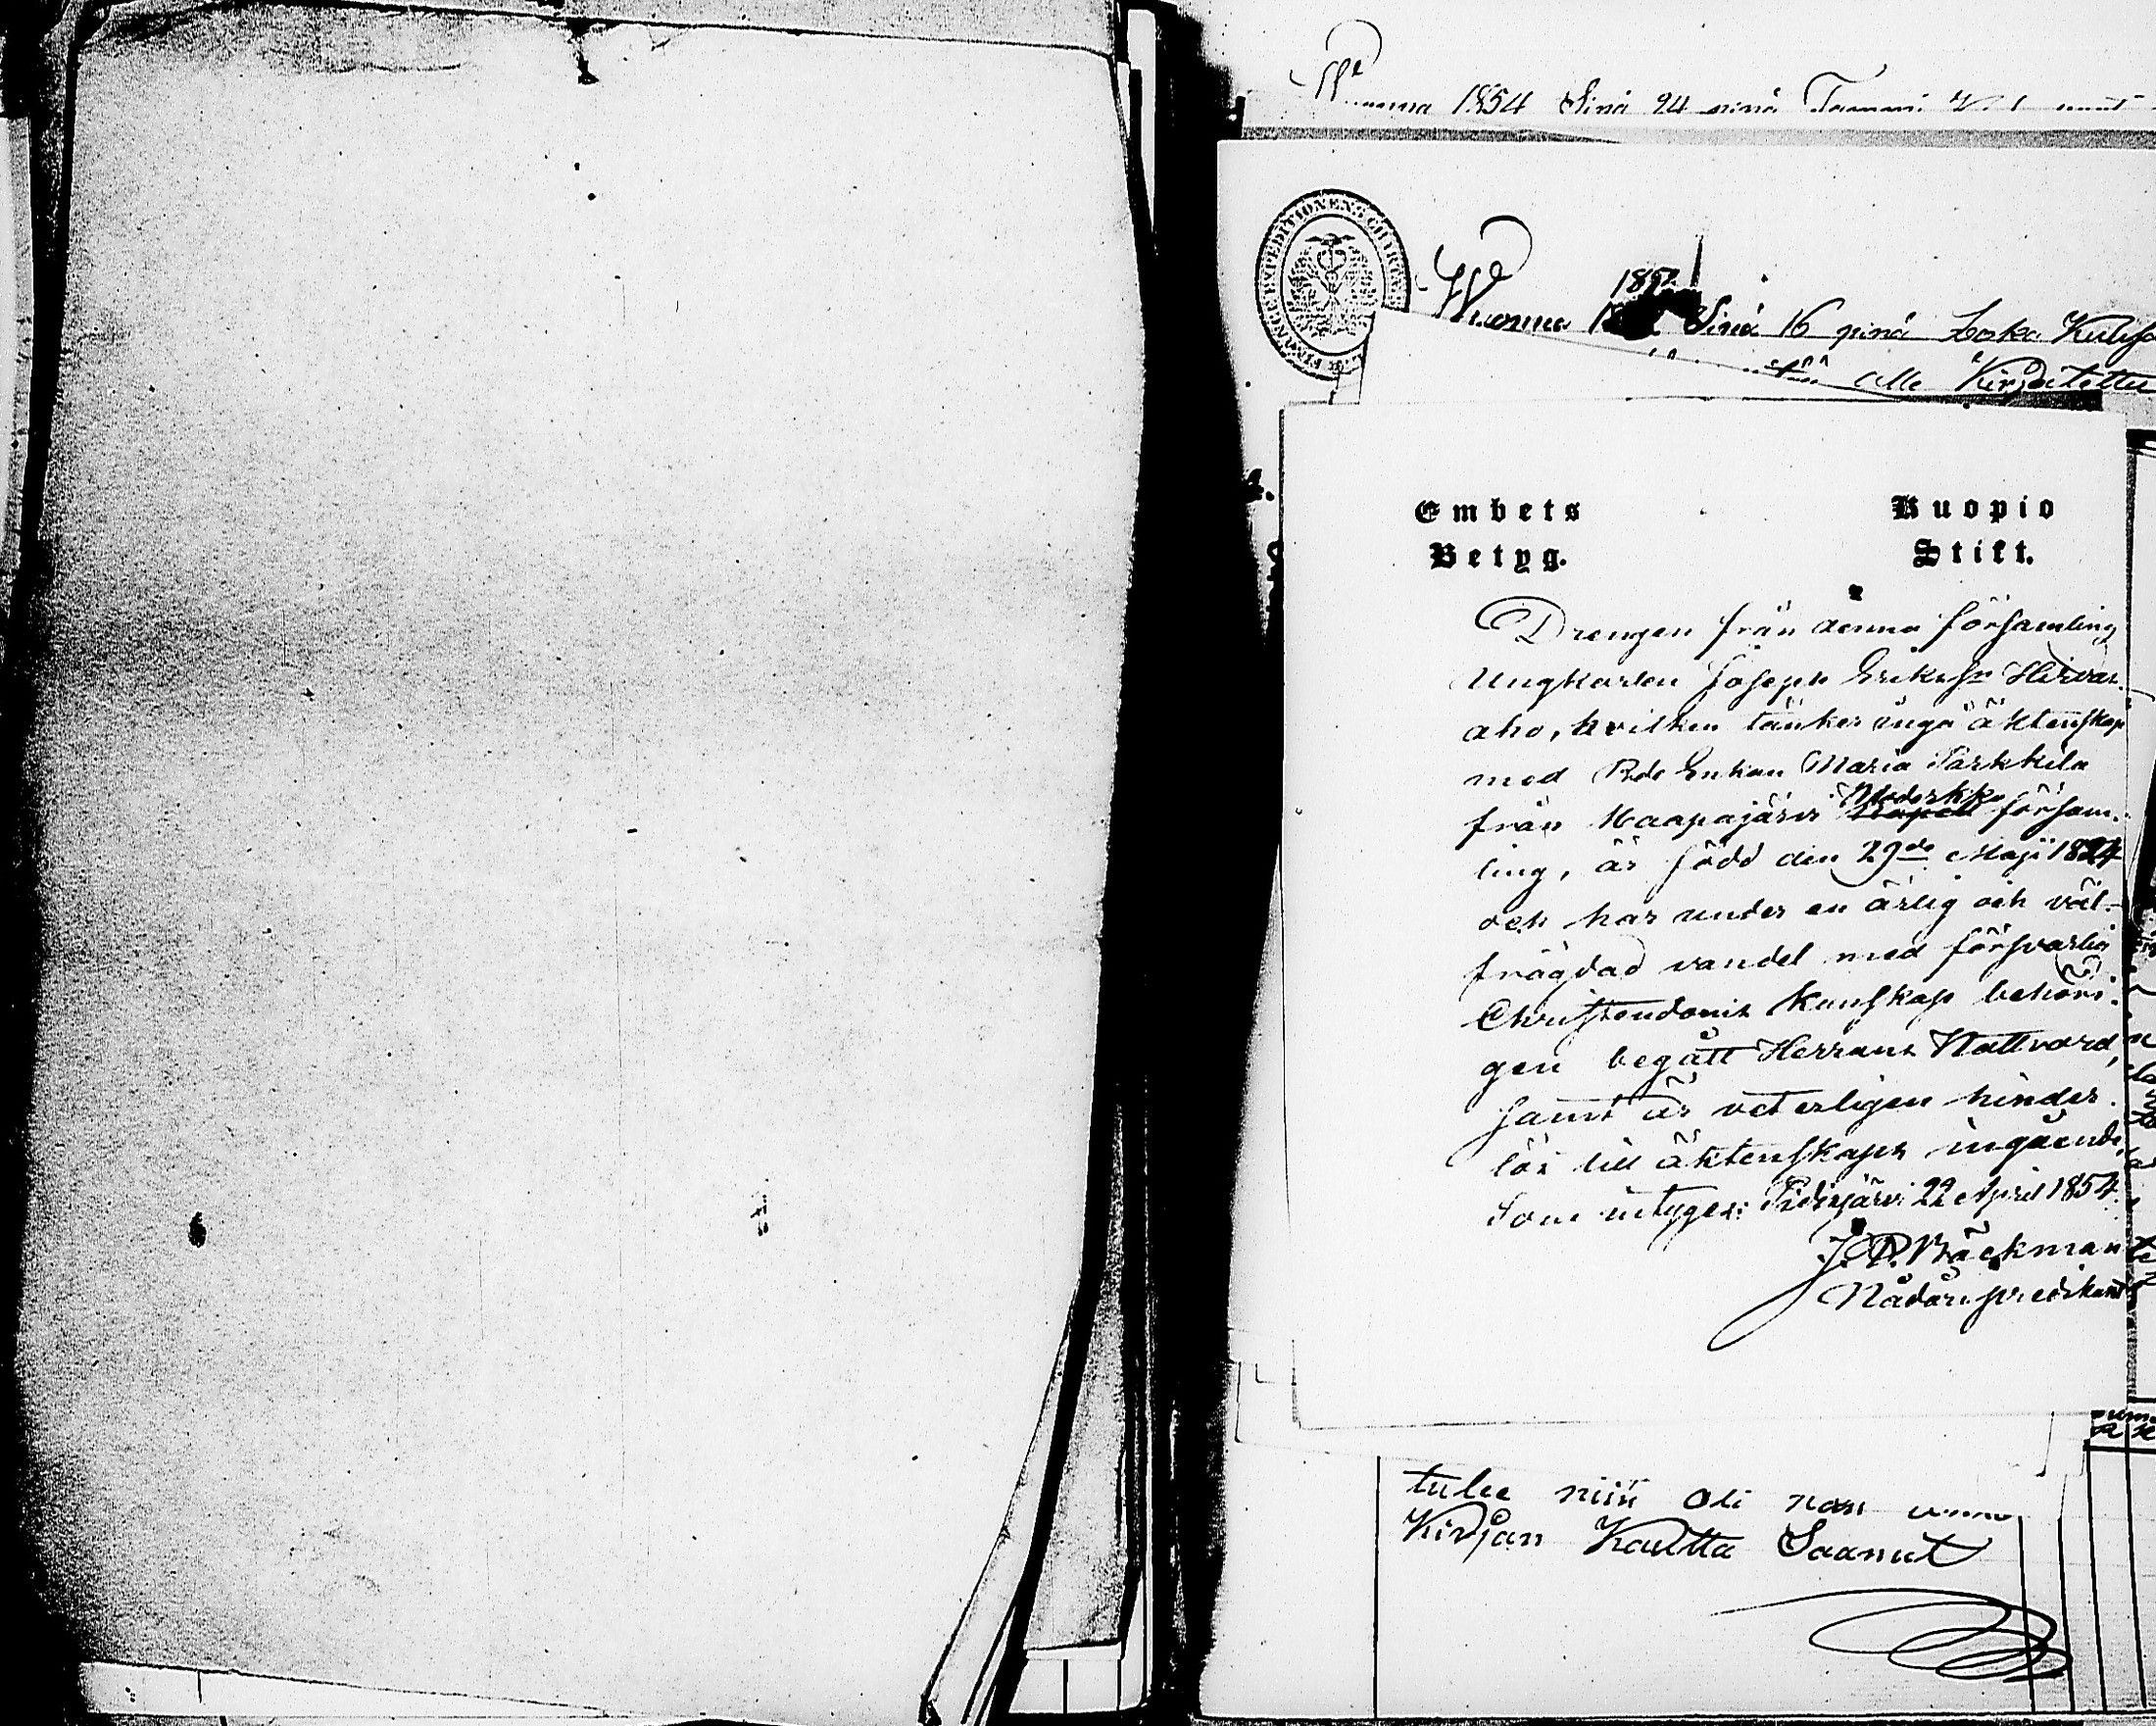 Wuonna 1854 Sinä 24 pinä Tammi
FINANCE EXPEDITIONENS CHARTÆ
Wuonna Sinä 16 pinä Loka Kuusa
alle Kirjoitettu
Embets Kuopio
Betyg. Stift.
Drengen från denna församling
Ungkarlen Joseph Eriksson Hirvas-
aho, hvilken tänker ingå äktenskap
med Pde Enkan Maria Parkkila
från Haapajärvi Moderkko församl-
ling, är född den 29de Maji 1824
och har under en ärlig och väl-
frägdad vandel med försvarlig
Christendoms kunskap behöri-
gen begått Herrans Nattvard,
samt är veterligen hinder-
lös till äktenskaps ingående,
Som intygar: Pidisjärvi 22 April 1854.
J. P. Bäckman
Nådårspredikant
tulee niin oli nan
Kirjan Kautta Saanut